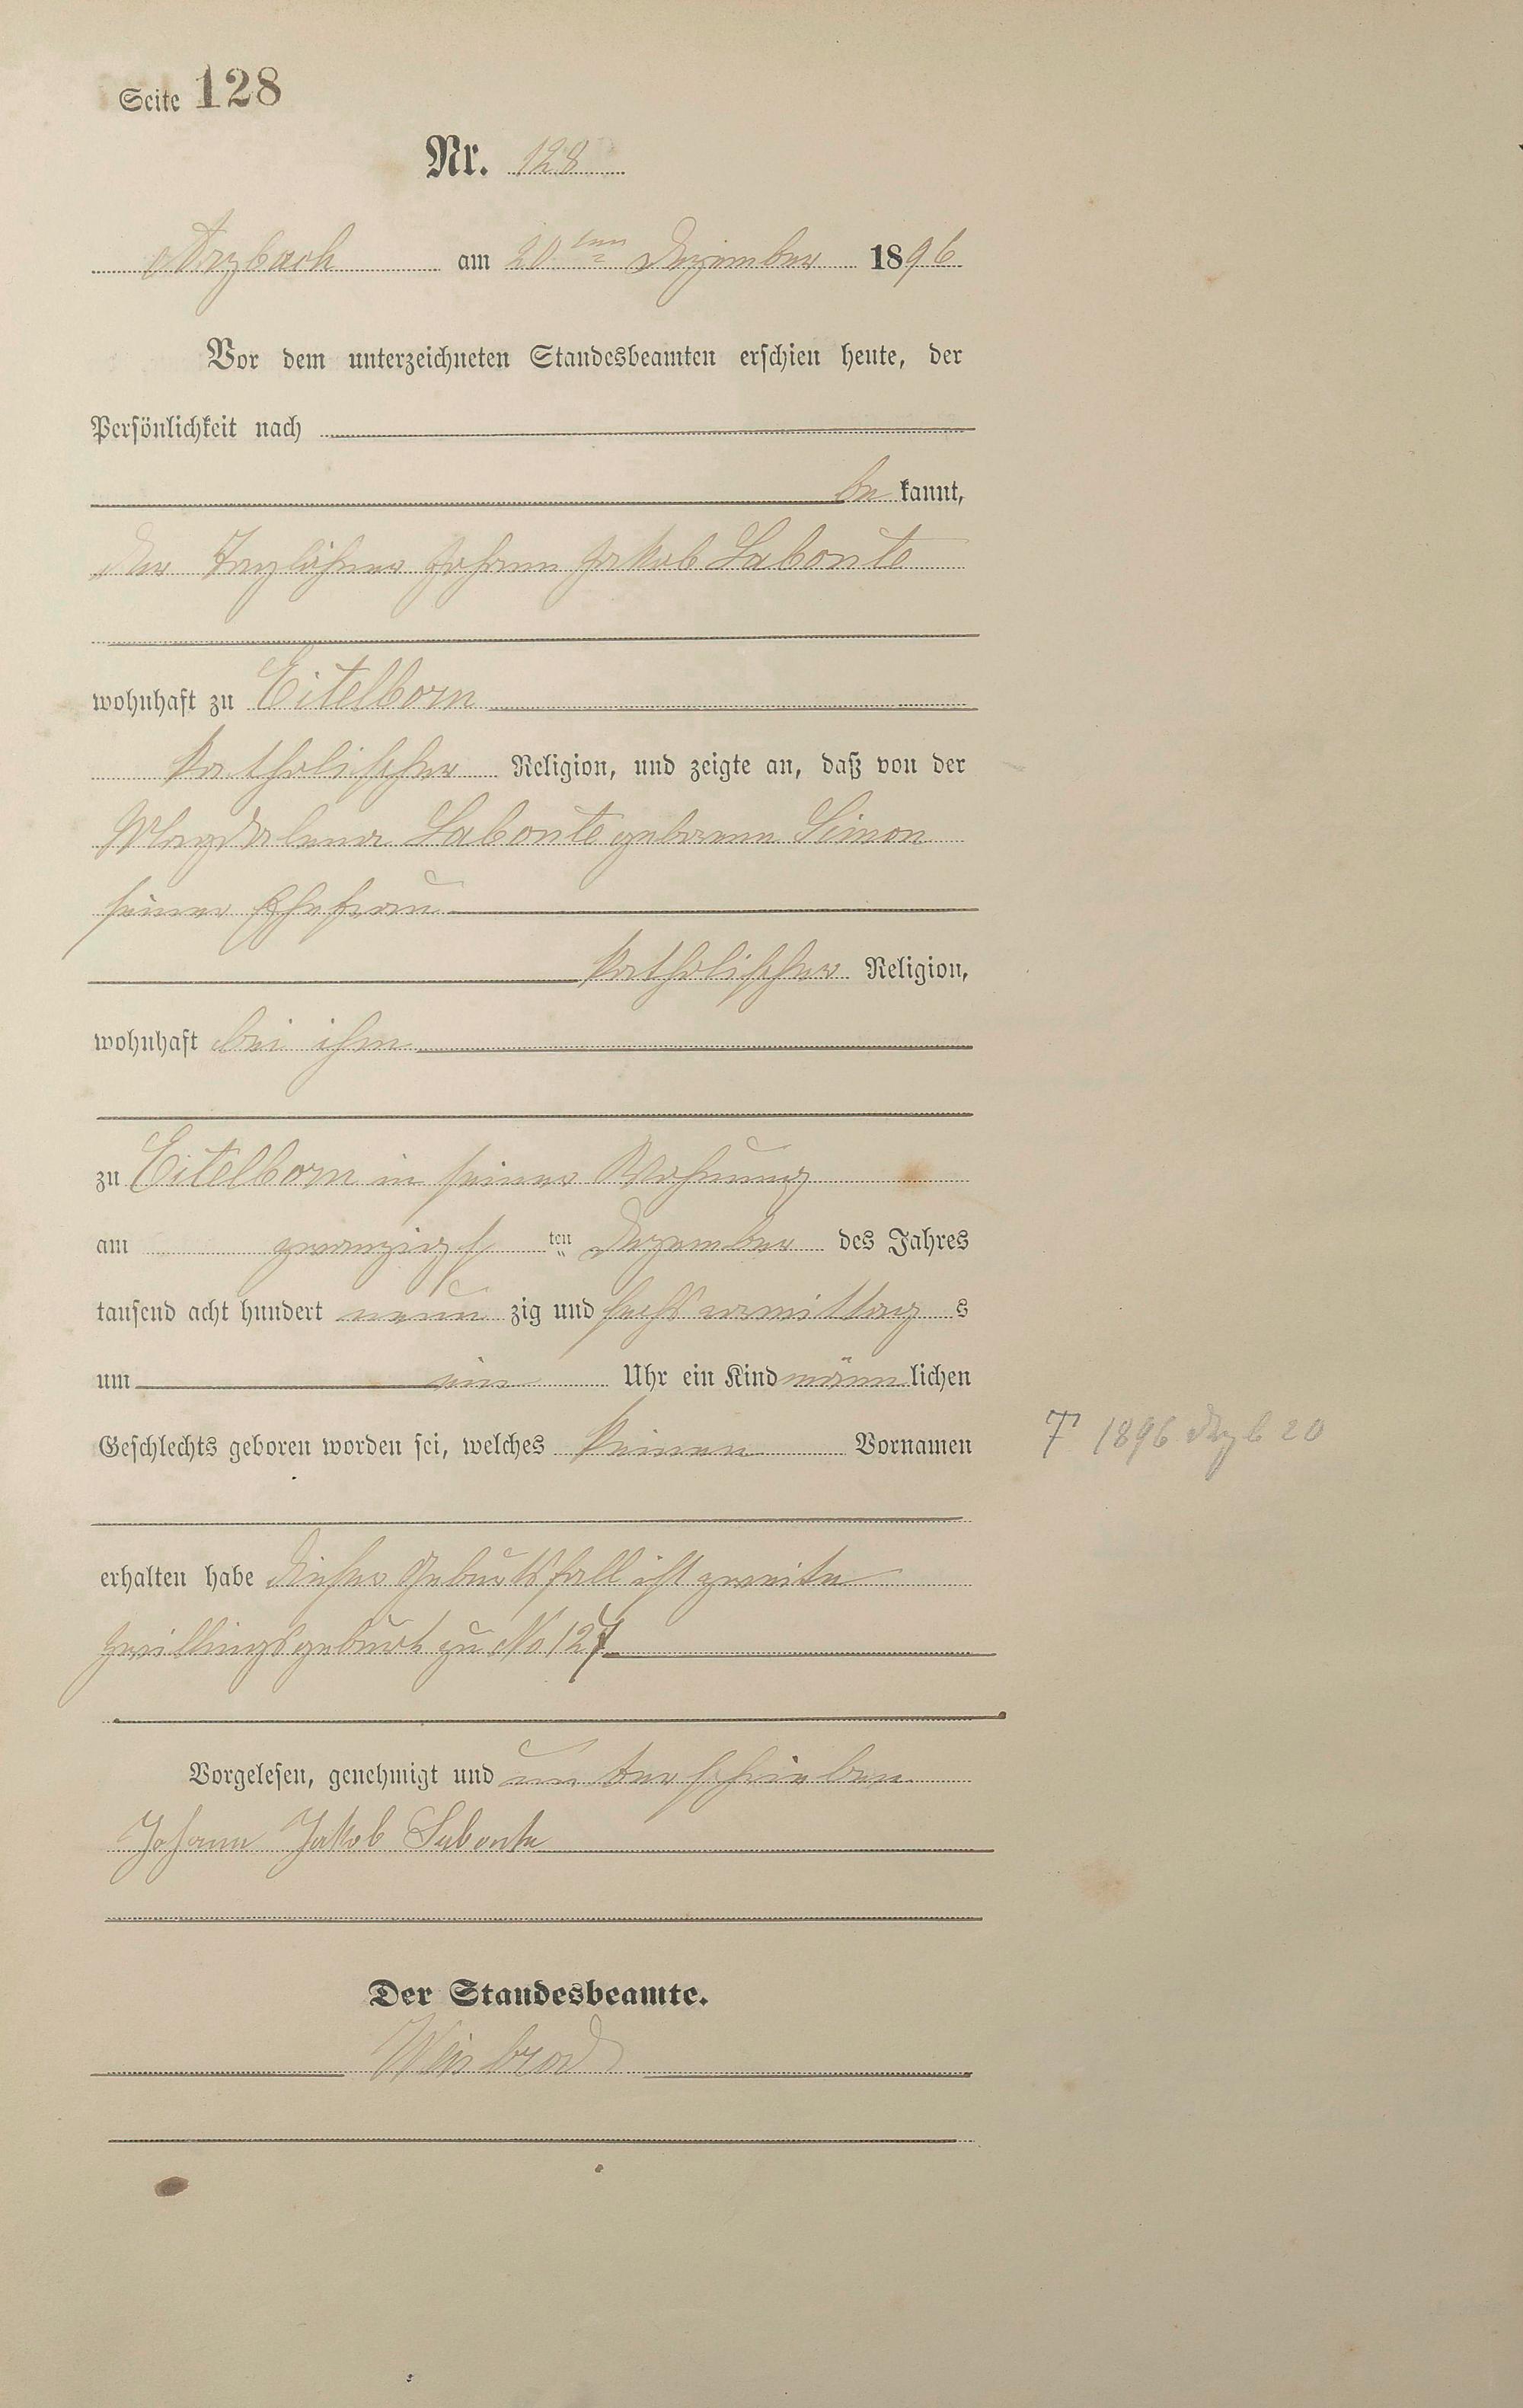 Seite 128
Nr. 128
Arzbach am 20ten Dezember 1896
Vor dem unterzeichneten Standesbeamten erschien heute, der
Persönlichkeit nach
be kannt,
der Taglöhner Johann Jakob Labonte
wohnhaft zu Eitelborn
katholischer Religion, und zeigte an, daß von der
Magdalena Labonte geborene Simon
seiner Ehefrau
katholischer Religion,
wohnhaft bei ihm
zu Eitelborn in seiner Wohnung
am zwanzigs ten Dezember des Jahres
tausend acht hundert neun zig und sechs vormittag s
um ein Uhr ein Kind männ lichen
Geschlechts geboren worden sei, welches keinen Vornamen
† 1896 Dezb 20
erhalten habe Dieser Geburtsfall ist zweite
Zwillingsgeburt zu No 127
Vorgelesen, genehmigt und unterschrieben
Johann Jakob Labonte
Der Standesbeamte.
Weisbrod